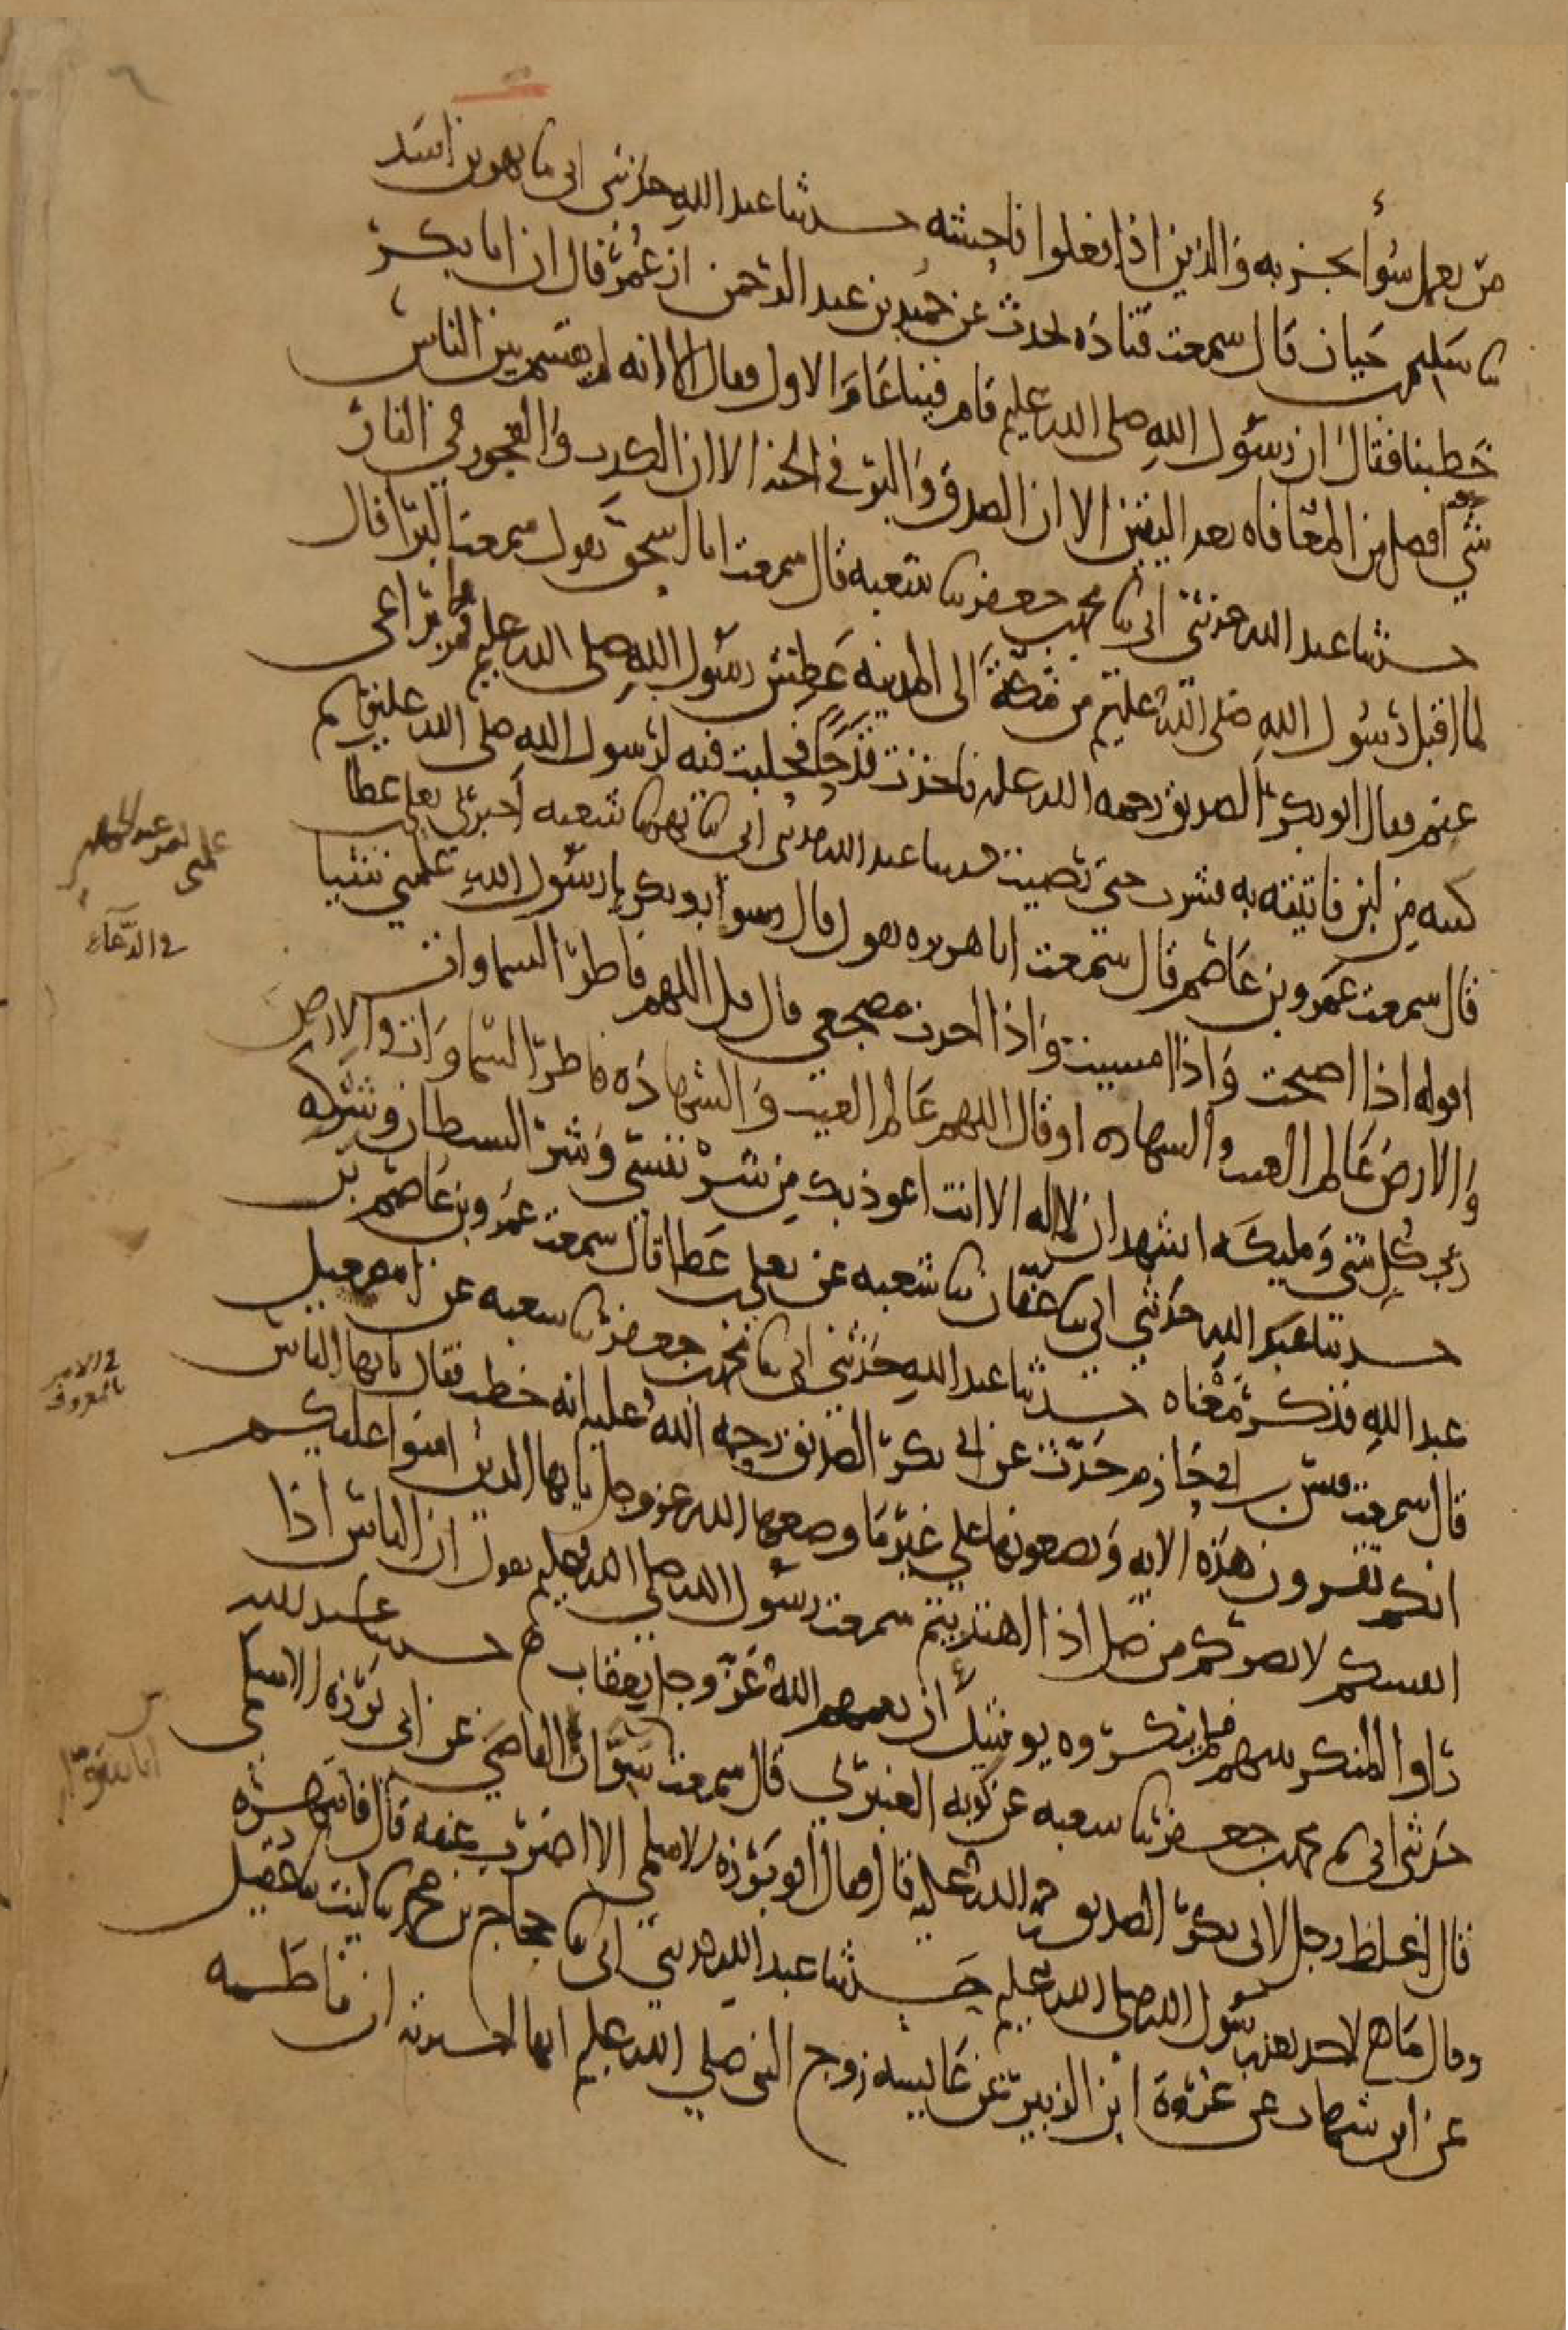 من يعمل سوءا يجز به والذين اذا فعلوا فاحشة حدثنا عبد الله حدثني ابي نا بهز بن اسد
نا سليم بن حيان قال سمعت قتادة يحدث عن حميد بن عبد الرحمن ان عمر قال ان ابا بكر
خطبنا فقال ان رسول الله صلى الله عليه قام فينا عام الاول فقال الا انه لم يقسم بين الناس
شي افضل من المعافاه بعد اليقين الا ان الصدق والبر في الجنة الا ان الكذب والفجور في النار
حدثنا عبد الله حدثني ابي نا محمد بن جعفر نا شعبه قال سمعت ابا اسحق يقول سمعت البرا قال
لما اقبل رسول الله صلى الله عليه وسلم من مكة الى المدينه عطش رسول الله صلى الله عليه وسلم فمر براعي
غنم فقال ابو بكر الصديق رحمه الله عليه فاخذت قدحا فحلبت فيه لرسول الله صلى الله عليه وسلم
كثبه من لبن فاتيته به فشرب حتى رضيت حدثنا عبد الله حدثني ابي نا بهز نا شعبه اخبرني يعلى بن عطا
قال سمعت عمرو بن عاصم قال سمعت ابا هريره يقول قال ابو بكر يا رسول الله علمني شيا
اقوله اذا اصبحت واذا امسيت واذا اخذت مضجعي قال قل اللهم فاطر السماوات
والارض عالم الغيب والشهاده او قال اللهم عالم الغيب والشهاده فاطر السماوات والارض
رب كل شي ومليكه اشهد ان لا اله الا انت اعوذ بك من شر نفسي وشر الشيطان وشركه
حدثنا عبد الله حدثني ابي نا عفان نا شعبه عن يعلى بن عطا قال سمعت عمرو بن عاصم بن
عبد الله فذكر معناه حدثنا عبد الله حدثني ابي نا محمد بن جعفر نا شعبه عن اسمعيل
قال سمعت قيس بن ابي حازم حدث عن ابي بكر الصديق رحمه الله عليه انه خطب فقال يا ايها الناس
انكم تقرون هذه الايه وتضعونها على غير ما وضعها الله عز وجل يا ايها الذين امنوا عليكم
انفسكم لا يضركم من ضل اذا اهتديتم سمعت رسول الله صلى الله عليه وسلم يقول ان الناس اذا
راوا المنكر بينهم فلم ينكروه يوشك ان يعمهم الله عز وجل بعقاب حدثنا عبد الله
حدثني ابي نا محمد بن جعفر نا شعبه عن توبه العنبري قال سمعت ابا سوار القاضي عن ابي برزه الاسلمي
قال اغلظ رجل لابي بكر الصديق رحمه الله عليه قال فقال ابو برزه الاسلمي الا اضرب عنقه قال فانتهره
وقال ما هي لاحد بعد رسول الله صلى الله عليه وسلم حدثنا عبد الله حدثني ابي نا حجاج بن محمد نا ليث نا عقيل
عن ابن شهاب عن عروة ابن الزبير عن عايشه زوج النبي صلى الله عليه وسلم انها اخبرته ان فاطمه
في الدعاء
في الامر
بالمعروف
ابا سوار